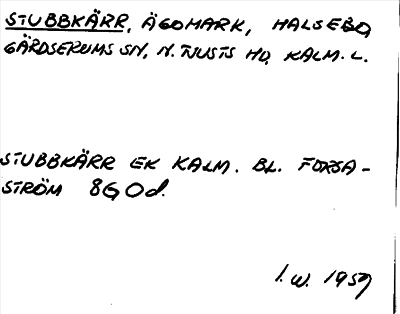 STUBBKÄRR, ÄGOMARK, HALSEBO,
GÄRDSERUMS SN, N. TJUSTS HD, KALM. L.
STUBBKÄRR EK KALM. BL. FORSA-
STRÖM 8G 0d.
I.W. 1957